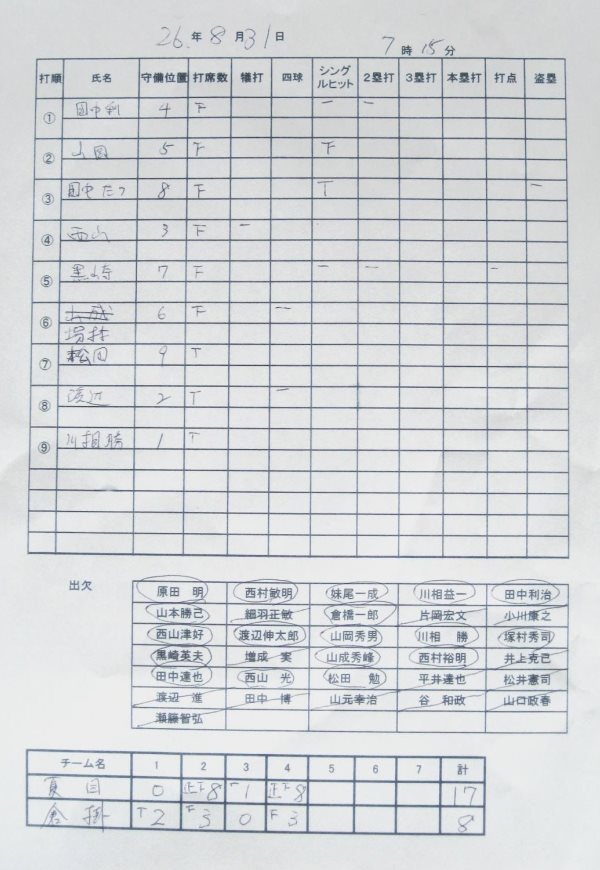 26年8月31日 7時15分
打順 氏名 守備位置 打席数 犠打 四球 シングルヒット 2塁打 3塁打 本塁打 打点 盗塁
① 田中利 4 F 一 一
② 山岡 5 F F
③ 田中たつ 8 F T 一
④ 西山 3 F 一
⑤ 黒崎 7 F 一 一 一
⑥ 山成 6 F 一
塚村
⑦ 松田 9 T
⑧ 渡辺 2 T 一
⑨ 川相勝 1 T
出欠
原田 明 西村敏明 妹尾一成 川相益一 田中利治
山本勝己 細羽正敏 倉橋一郎 片岡宏文 小川康之
西山津好 渡辺伸太郎 山岡秀男 川相 勝 塚村秀司
黒崎英夫 増成 実 山成秀峰 西村裕明 井上克己
田中達也 西山 光 松田 勉 平井達也 松井憲司
渡辺 進 田中 博 山元幸治 谷 和政 山口政春
瀬籐智弘
チーム名 1 2 3 4 5 6 7 計
夏目 0 正T8 一1 正T8 17
倉掛 T2 F3 0 F3 8